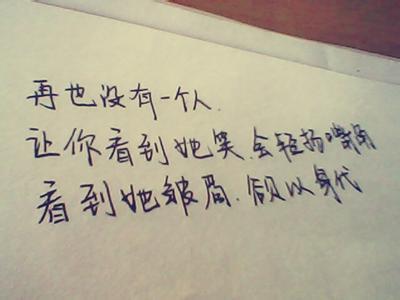 再也没有一个人.
让你看到她笑.会轻扬嘴角
看到她皱眉.愿以身代